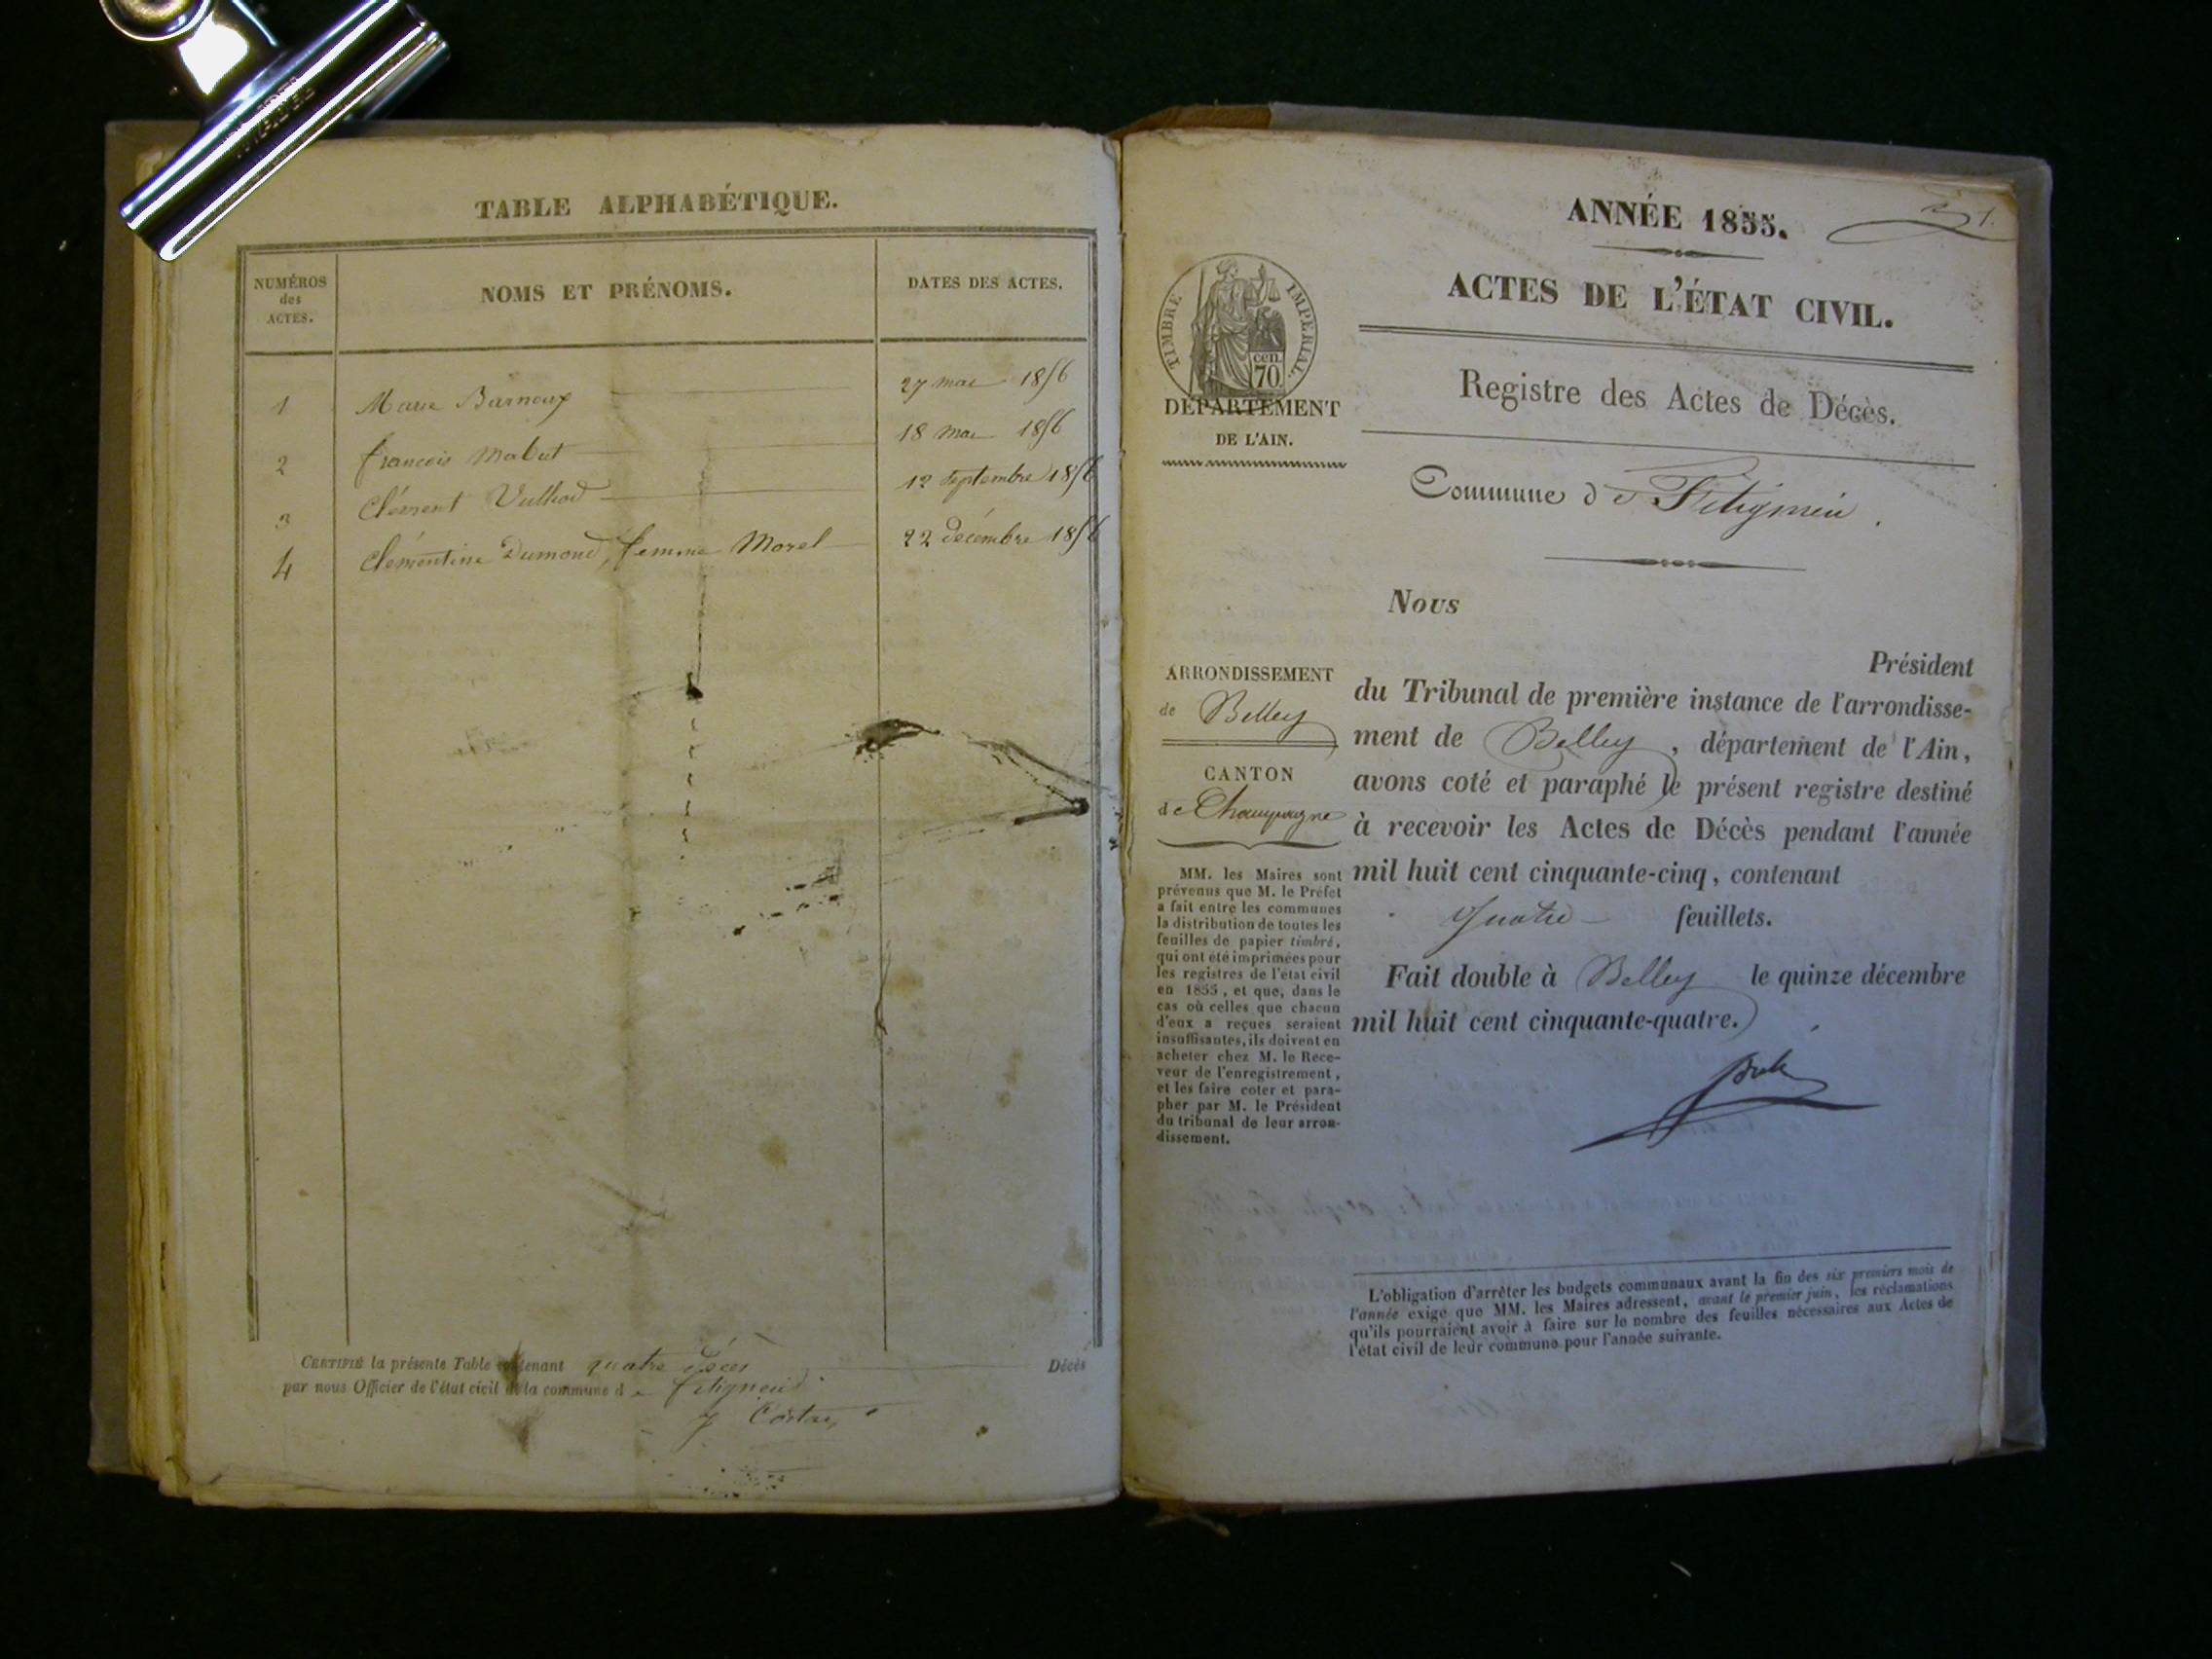 TABLE ALPHABÉTIQUE.
NUMÉROS
des
ACTES.
NOMS ET PRÉNOMS.
DATES DES ACTES.
1 Marie 27 mai 1856
2 françois Mabut 18 mai 1856
3 Clément 12 septembre 1856
4 Clémentine Dumond, femme Morel 22 décembre 1856
CERTIFIÉ la présente Table contenant quatre décès Décès
par nous Officier de l'état civil de la commune de fitignieu
ANNÉE 1855.
1.
ACTES DE L'ÉTAT CIVIL.
Registre des Actes de Décès.
TIMBRE IMPÉRIAL.
cen.
70
DÉPARTEMENT
DE L'AIN.
Commune de Fitignieu.
ARRONDISSEMENT
de Belley
CANTON
de Champagne
MM. les Maires sont
prévenus que M. le Préfet
a fait entre les communes
la distribution de toutes les
feuilles de papier timbré,
qui ont été imprimées pour
les registres de l'état civil
en 1855, et que, dans le
cas où celles que chacun
d'eux a reçues seraient
insuffisantes, ils doivent en
acheter chez M. le Rece-
veur de l'enregistrement,
et les faire coter et para-
pher par M. le Président
du tribunal de leur arron-
dissement.
Nous
Président
du Tribunal de première instance de l'arrondisse-
ment de Belley, département de l'Ain,
avons coté et paraphé le présent registre destiné
à recevoir les Actes de Décès pendant l'année
mil huit cent cinquante-cinq, contenant
quatre feuillets.
Fait double à Belley le quinze décembre
mil huit cent cinquante-quatre.
L'obligation d'arrêter les budgets communaux avant la fin des six premiers mois de
l'année exige que MM. les Maires adressent, avant le premier juin, les réclamations
qu'ils pourraient avoir à faire sur le nombre des feuilles nécessaires aux Actes de
l'état civil de leur commune pour l'année suivante.